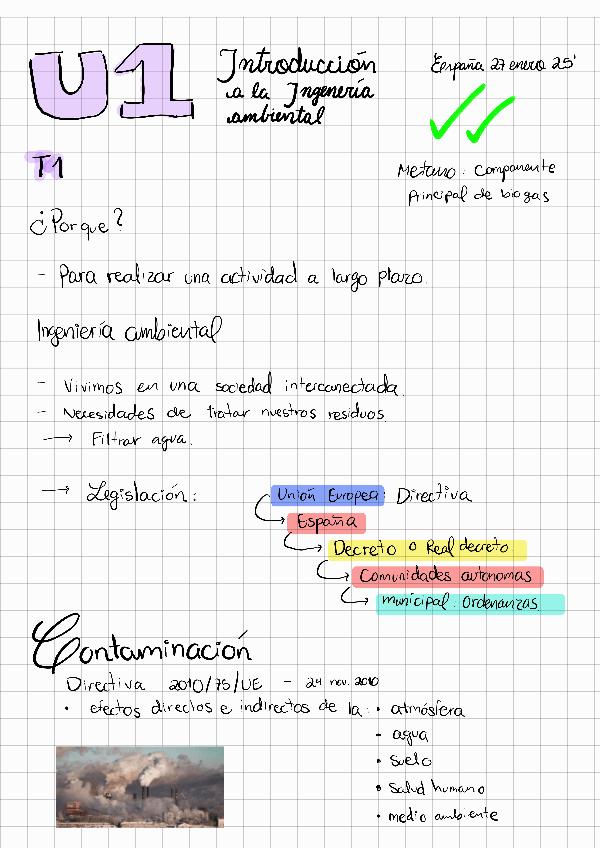 U1
Introducción
a la Ingeneria
ambiental
España 27 enero 25'
T1
Metano: Componente
Principal de biogas
¿Porque?
- Para realizar una actividad a largo plazo.
Ingeniería ambiental
- Vivimos en una sociedad interconectada.
- Necesidades de tratar nuestros residuos.
→ Filtrar agua.
→ Legislación: Unión Europea: Directiva
España
Decreto o Real decreto.
Comunidades autonomas
municipal: Ordenanzas.
Contaminación
Directiva 2010/75/UE - 24 nov. 2010
• efectos directos e indirectos de la: • atmósfera
- agua
• suelo
• salud humano
• medio ambiente